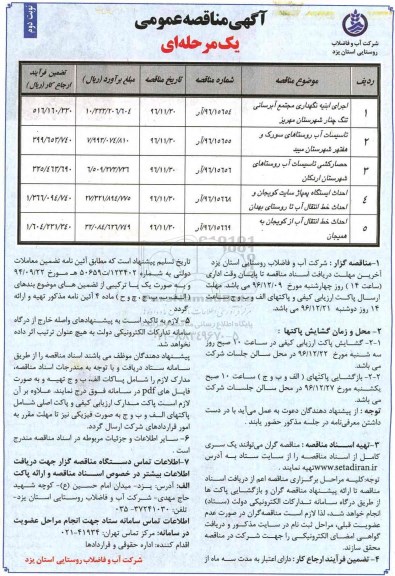 نوبت دوم
آگهی مناقصه عمومی
یک مرحله‌ای
شرکت آب و فاضلاب
روستایی استان یزد
ردیف
موضوع مناقصه
شماره مناقصه
تاریخ مناقصه
مبلغ برآورد (ریال)
تضمین فرآیند
ارجاع کار (ریال)
۱
اجرای ابنیه نگهداری مجتمع آبرسانی
تنگ چنار شهرستان مهریز
۹۶/۱۵۶۵۴/آر
۹۶/۱۱/۳۰
۱۰/۳۲۳/۲۰۶/۶۰۴
۵۱۶/۱۶۰/۳۳۰
۲
تاسیسات آب روستاهای سورک و
هفتهر شهرستان میبد
۹۶/۱۵۶۵۵/آر
۹۶/۱۱/۳۰
۷/۹۹۳/۰۷۴/۸۱۰
۳۹۹/۶۵۳/۷۴۰
۳
حصارکشی تاسیسات آب روستاهای
شهرستان اردکان
۹۶/۱۵۶۵۶/آر
۹۶/۱۱/۳۰
۶/۵۰۹/۲۷۳/۷۳۶
۳۲۵/۴۶۳/۶۹۰
۴
احداث ایستگاه پمپاژ سایت کویجان و
احداث خط انتقال آب تا روستای بهدان
۹۶/۱۵۶۶۸/آر
۹۶/۱۱/۳۰
۲۷/۳۲۱/۸۹۴/۷۷۵
۱/۳۶۶/۰۹۴/۷۴۰
۵
احداث خط انتقال آب از کویجان به
همیجان
۹۶/۱۵۶۶۹/آر
۹۶/۱۱/۳۰
۳۲/۰۸۴/۶۲۶/۷۴۹
۱/۶۰۴/۲۳۱/۳۴۰
۱-مناقصه گزار : شرکت آب و فاضلاب روستایی استان یزد
آخرین مهلت دریافت اسناد مناقصه تا پایان وقت اداری
(ساعت ۱۴ ) روز چهارشنبه مورخ ۹۶/۱۲/۰۹ می باشد. مهلت
ارسال پاکت ارزیابی کیفی و پاکتهای الف و ب و ج ساعت
۱۴ روز دوشنبه ۹۶/۱۲/۲۱ می باشد.
۲- محل و زمان گشایش پاکتها :
۲-۱- گشایش پاکت ارزیابی کیفی در ساعت ۱۰ صبح روز
سه شنبه مورخ ۹۶/۱۲/۲۲ در محل سالن جلسات شرکت
می باشد.
۲-۲- بازگشایی پاکتهای ( الف و ب و ج ) ساعت ۱۰ صبح
یکشنبه مورخ ۹۶/۱۲/۲۷ در محل سالن جلسات شرکت
می باشد.
توجه : از پیشنهاد دهندگان دعوت به عمل می‌آید با در دست
داشتن معرفی‌نامه در جلسه مذکور حضور یابند .
۳-تهیه اسناد مناقصه : مناقصه گران می‌توانند یک سری
کامل از اسناد مناقصه را از سایت ستاد به آدرس
www.setadiran.ir تهیه نمایند .
توجه:کلیه مراحل برگزاری مناقصه اعم از دریافت اسناد
مناقصه تا ارائه پیشنهاد مناقصه گران و بازگشایی پاکت ها
از طریق درگاه سامانه تدارکات الکترونیکی دولت (ستاد)
انجام خواهد شد، لذا لازم است مناقصه‌گران در صورت عدم
عضویت قبلی، مراحل ثبت نام در سایت مذکور و دریافت
گواهی امضای الکترونیکی را جهت شرکت در مناقصه
محقق سازند.
۴- تضمین فرآیند ارجاع کار : دارای اعتبار به مدت سه ماه از
تاریخ تسلیم پیشنهاد است که مطابق آئین نامه تضمین معاملات
دولتی به شماره ۱۲۳۴۰۲/ت۵۰۶۵۹ه مورخ ۹۴/۰۹/۲۲
و به صورت یک یا ترکیبی از تضمین های موضوع بندهای
(الف، ب، پ، ج، چ و ح ) ماده ۴ آئین نامه مذکور تهیه و ارائه
گردد .
۵- لازم به تاکید است به پیشنهادهای واصله خارج از درگاه
سامانه تدارکات الکترونیکی دولت به هیچ عنوان ترتیب اثر داده
نخواهد شد.
پیشنهاد دهندگان موظف می باشند اسناد مناقصه را از طریق
سامانه ستاد دریافت و با توجه به مندرجات اسناد مناقصه،
مدارک لازم را شامل پاکات الف، ب و ج تهیه و به صورت
فایل های pdf در سامانه فوق درج نمایند. علاوه بر آن
لازم است پاکت مدارک ارزیابی کیفی و پاکت اصلی شامل
پاکتهای الف و ب و ج به صورت فیزیکی نیز تا مهلت مقرر به
امور قراردادهای شرکت ارسال گردد.
۶- سایر اطلاعات و جزئیات مربوطه در اسناد مناقصه مندرج
است .
۷-اطلاعات تماس دستگاه مناقصه گزار جهت دریافت
اطلاعات بیشتر در خصوص اسناد مناقصه و ارائه پاکت
الف: آدرس: یـزد- میدان امام حسین (ع)- کوچه شهید
حاج مهدی- شرکت آب و فاضلاب روستایی استان یزد-
تلفن: ۳۷۲۴۱۰۳۰-۰۳۵
اطلاعات تماس سامانه ستاد جهت انجام مراحل عضویت
در سامانه: مرکز تماس تهران: ۴۱۹۳۴-۰۲۱
اقدام کننده: اداره حقوقی و قراردادها
شرکت آب و فاضلاب روستایی استان یزد